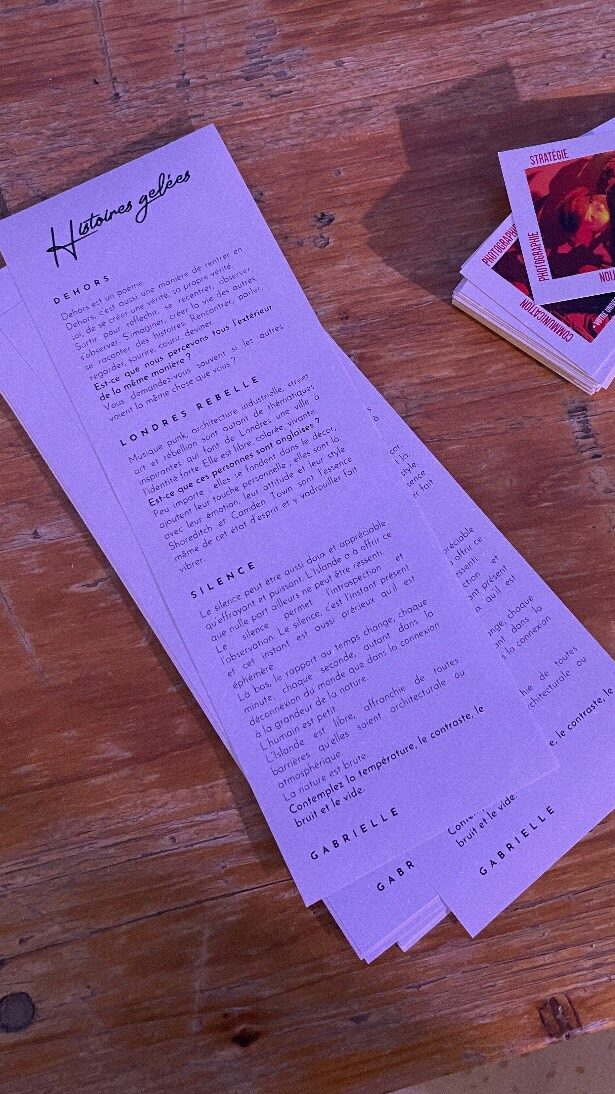 Histoires gelées
DEHORS
Dehors est un poème.
Dehors, c'est aussi une manière de rentrer en
soi, de se créer une vérité, sa propre vérité.
Sortir pour réfléchir, se recentrer, observer,
s'observer. S'imaginer, créer la vie des autres,
se raconter des histoires. Rencontrer, parler,
regarder, sourire, courir, deviner.
Est-ce que nous percevons tous l'extérieur
de la même manière ?
Vous demandez-vous souvent si les autres
voient la même chose que vous ?
LONDRES REBELLE
Musique punk, architecture industrielle, street
art et rébellion sont autant de thématiques
inspirantes qui font de Londres une ville à
l'identité forte. Elle est libre, colorée, vivante.
Est-ce que ces personnes sont anglaises ?
Peu importe : elles se fondent dans le décor,
ajoutent leur touche personnelle ; elles sont là
avec leur émotion, leur attitude et leur style.
Shoreditch et Camden Town sont l'essence
même de cet état d'esprit et y vadrouiller fait
vibrer.
SILENCE
Le silence peut être aussi doux et appréciable
qu'effrayant et puissant. L'Islande a à offrir ce
que nulle part ailleurs ne peut être ressenti.
Le silence permet l'introspection et
l'observation. Le silence, c'est l'instant présent
et cet instant est aussi précieux qu'il est
éphémère.
Là bas, le rapport au temps change, chaque
minute, chaque seconde, autant dans la
déconnexion du monde que dans la connexion
à la grandeur de la nature.
L'humain est petit.
L'Islande est libre, affranchie de toutes
barrières qu'elles soient architecturale ou
atmosphérique.
La nature est brute.
Contemplez la température, le contraste, le
bruit et le vide.
GABRIELLE
GABR
s
à
cor,
t là,
style.
sence
er fait
préciable
offrir ce
ssenti.
on et
nt présent
x qu'il est
nge, chaque
nt dans la
s la connexion
hie de toutes
chitecturale ou
e, le contraste, le
Conte
bruit et le vide.
GABRIELLE
STRATÉGIE
PHOTOGRAPHIE
TION
PHOTOGRAPHI
COMMUNICATION